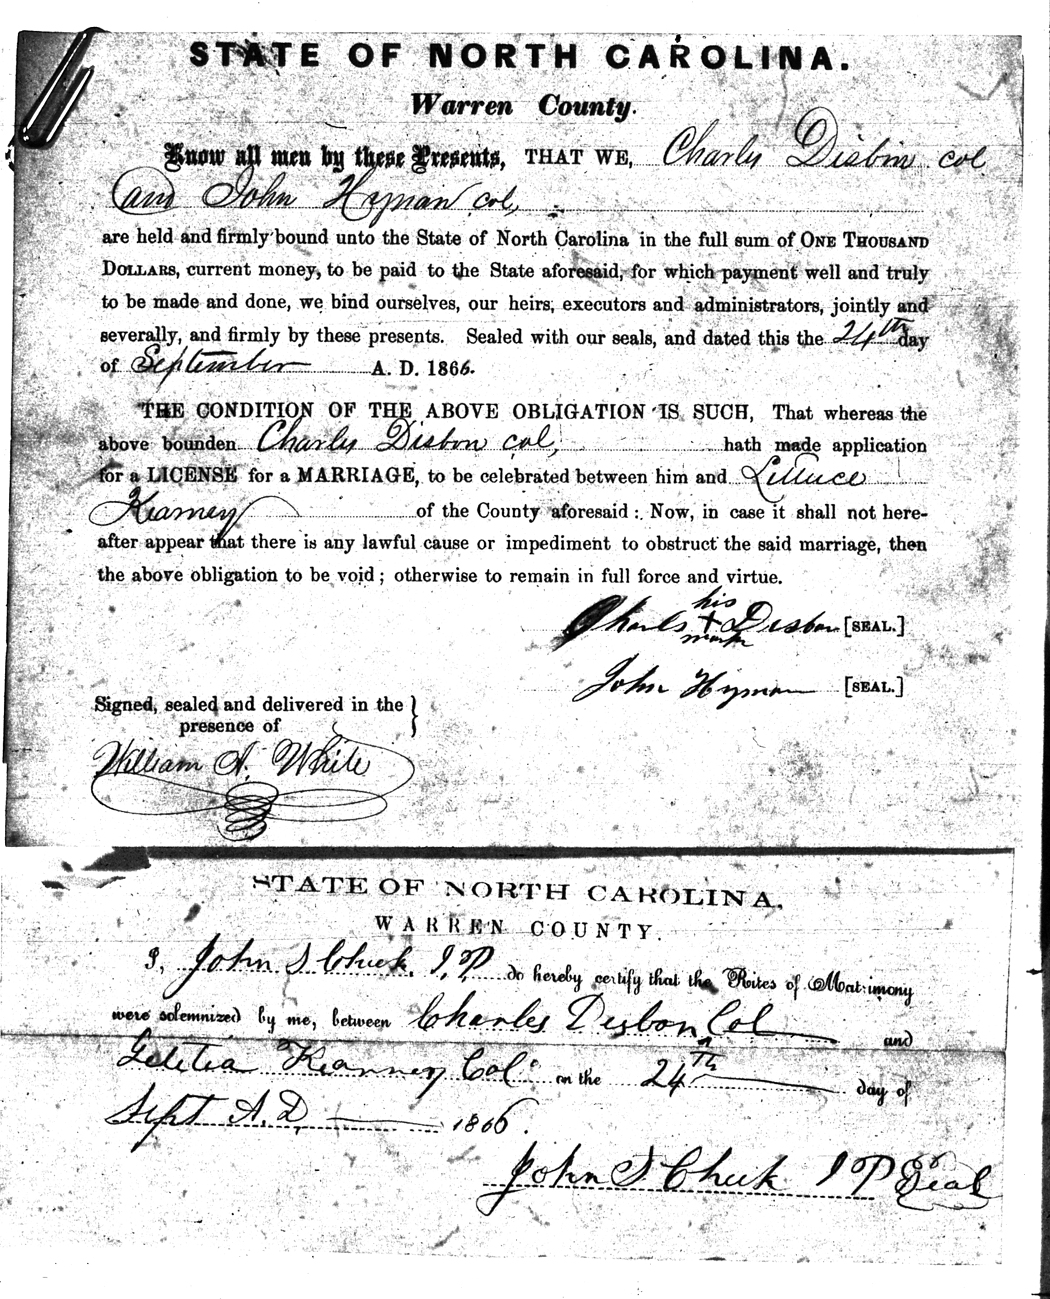 STATE OF NORTH CAROLINA.
Warren County.
Know all men by these Presents, THAT WE, Charles Disbon col
and John Hyman col,
are held and firmly bound unto the State of North Carolina in the full sum of ONE THOUSAND
DOLLARS, current money, to be paid to the State aforesaid, for which payment well and truly
to be made and done, we bind ourselves, our heirs, executors and administrators, jointly and
severally, and firmly by these presents. Sealed with our seals, and dated this the 24th day
of September A. D. 1866.
THE CONDITION OF THE ABOVE OBLIGATION IS SUCH, That whereas the
above bounden Charles Disbon col, hath made application
for a LICENSE for a MARRIAGE, to be celebrated between him and
Kearney of the County aforesaid: Now, in case it shall not here-
after appear that there is any lawful cause or impediment to obstruct the said marriage, then
the above obligation to be void; otherwise to remain in full force and virtue.
his
Charls + Disbon [SEAL.]
mark
John Hyman [SEAL.]
Signed, sealed and delivered in the
presence of
William A. White
STATE OF NORTH CAROLINA,
WARREN COUNTY.
I, John S Cheek J.P. do hereby certify that the Rites of Matrimony
were solemnized by me, between Charles Disbon Col and
Kearney Col on the 24th day of
Sept A.D. 1866.
John S Cheek J P Seal